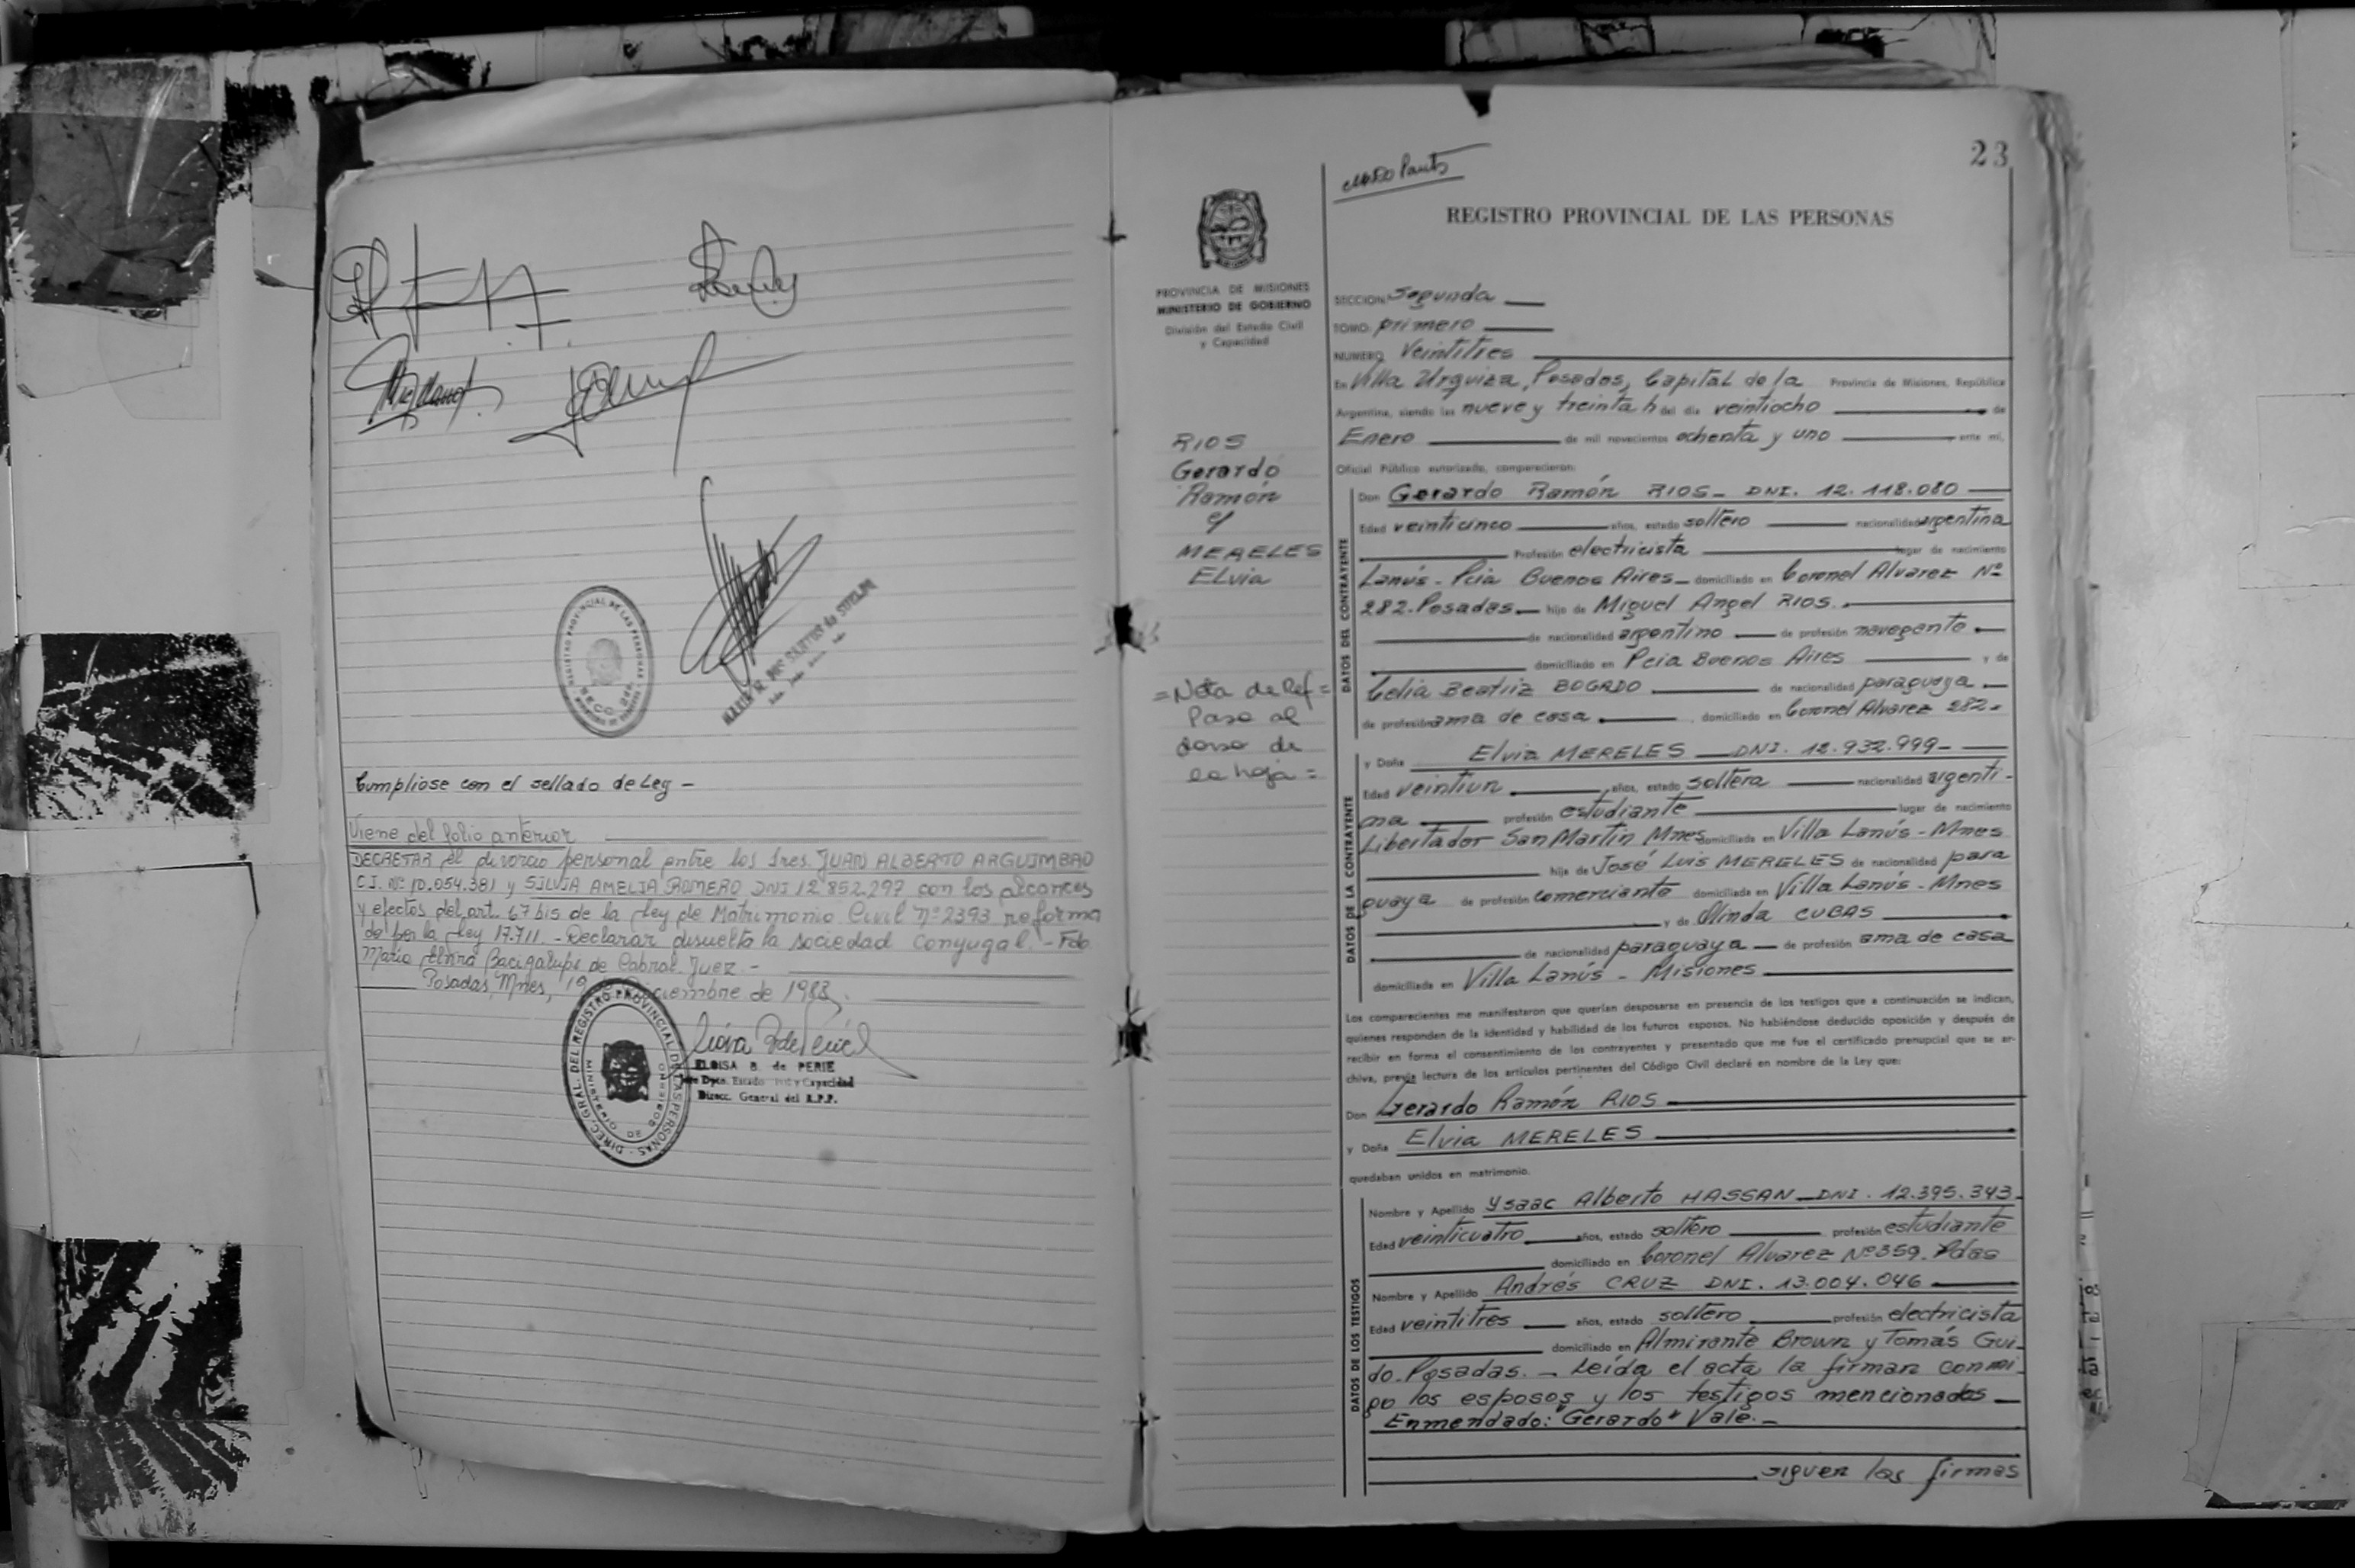 REGISTRO PROVINCIAL DE LAS PERSONAS
SECC. 2da.
MARIA R. DOS SANTOS de
Cumpliose con el sellado de Ley -
Viene del folio anterior
DECRETAR el divorcio personal entre los Sres. JUAN ALBERTO ARGUIMBAO
C.I. Nº 10.054.381 y SILVIA AMELIA ROMERO DNI 12852.297 con los alcances
y efectos del art. 67 bis de la Ley de Matrimonio Civil nº 2393 reforma
da por la Ley 17.711. - Declarar disuelta la sociedad conyugal. - Fdo
Maria Elvira Bacigalupi de Cabral. Juez -
Posadas, Mnes, 19 Diciembre de 1983.
DIREC. GRAL. DEL REGISTRO PROVINCIAL DE LAS PERSONAS
MINISTERIO DE GOBIERNO
ELOISA B. de PERIE
Dpto. Estado Civil y Capacidad
Direcc. General del R.P.P.
23
REGISTRO PROVINCIAL DE LAS PERSONAS
PROVINCIA DE MISIONES
MINISTERIO DE GOBIERNO
División del Estado Civil
y Capacidad
RIOS
Gerardo
Ramón
y
MERELES
Elvia
= Nota de Ref =
Pasa al
dorso de
la hoja =
SECCION: Segunda
TOMO: primero
NUMERO Veintitres
En Villa Urquiza, Posadas, Capital de la Provincia de Misiones, República
Argentina, siendo las nueve y treinta h del día veintiocho de
Enero de mil novecientos ochenta y uno ante mí,
Oficial Público autorizado, comparecieron:
DATOS DEL CONTRAYENTE
Don Gerardo Ramón RIOS - DNI. 12.118.080
Edad veinticinco años, estado soltero nacionalidad argentina
Profesión electricista lugar de nacimiento
Lanús - Pcia Buenos Aires - domiciliado en Coronel Alvarez Nº
282. Posadas - hijo de Miguel Angel RIOS.
de nacionalidad argentino de profesión navegante
domiciliado en Pcia Buenos Aires y de
Celia Beatriz BOGADO de nacionalidad paraguaya
de profesión ama de casa domiciliado en Coronel Alvarez 282-
DATOS DE LA CONTRAYENTE
y Doña Elvia MERELES DNI. 12.932.999-
Edad veintiun años, estado soltera nacionalidad argenti-
na profesión estudiante lugar de nacimiento
Libertador San Martin Mnes domiciliada en Villa Lanús - Mnes
hija de José Luis MERELES de nacionalidad para
guaya de profesión comerciante domiciliado en Villa Lanús - Mnes
y de Olinda CUBAS
de nacionalidad paraguaya de profesión ama de casa
domiciliada en Villa Lanús - Misiones
Los comparecientes me manifestaron que querían desposarse en presencia de los testigos que a continuación se indican,
quienes responden de la identidad y habilidad de los futuros esposos. No habiéndose deducido oposición y después de
recibir en forma el consentimiento de los contrayentes y presentado que me fue el certificado prenupcial que se ar-
chiva, previa lectura de los artículos pertinentes del Código Civil declaré en nombre de la Ley que:
Don Gerardo Ramón RIOS
y Doña Elvia MERELES
quedaban unidos en matrimonio.
DATOS DE LOS TESTIGOS
Nombre y Apellido Ysaac Alberto HASSAN DNI. 12.395.343-
Edad veinticuatro años, estado soltero profesión estudiante
domiciliado en Coronel Alvarez Nº 359. Pdas
Nombre y Apellido Andrés CRUZ DNI. 13.004.046
Edad veintitres años, estado soltero profesión electricista
domiciliado en Almirante Brown y Tomás Gui-
do. Posadas. - Leída el acta la firman conmi-
go los esposos y los testigos mencionados
Enmendado: "Gerardo" Vale. -
siguen las firmas